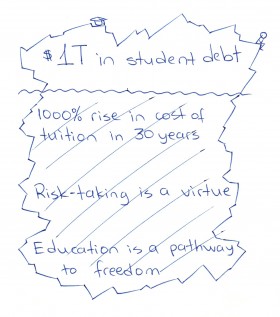 $1T in student debt
1000% rise in cost of
tuition in 30 years
Risk-taking is a virtue
Education is a pathway
to freedom